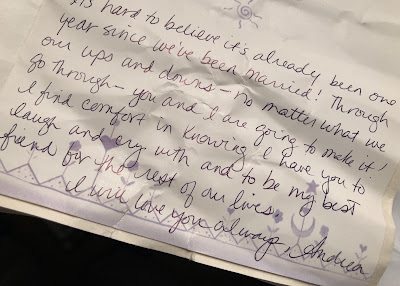 It's hard to believe it's already been one
year since we've been married! Through
our ups and downs – no matter what we
go through – you and I are going to make it!
I find comfort in knowing I have you to
laugh and cry with and to be my best
friend for the rest of our lives.
I will love you always, Andrea